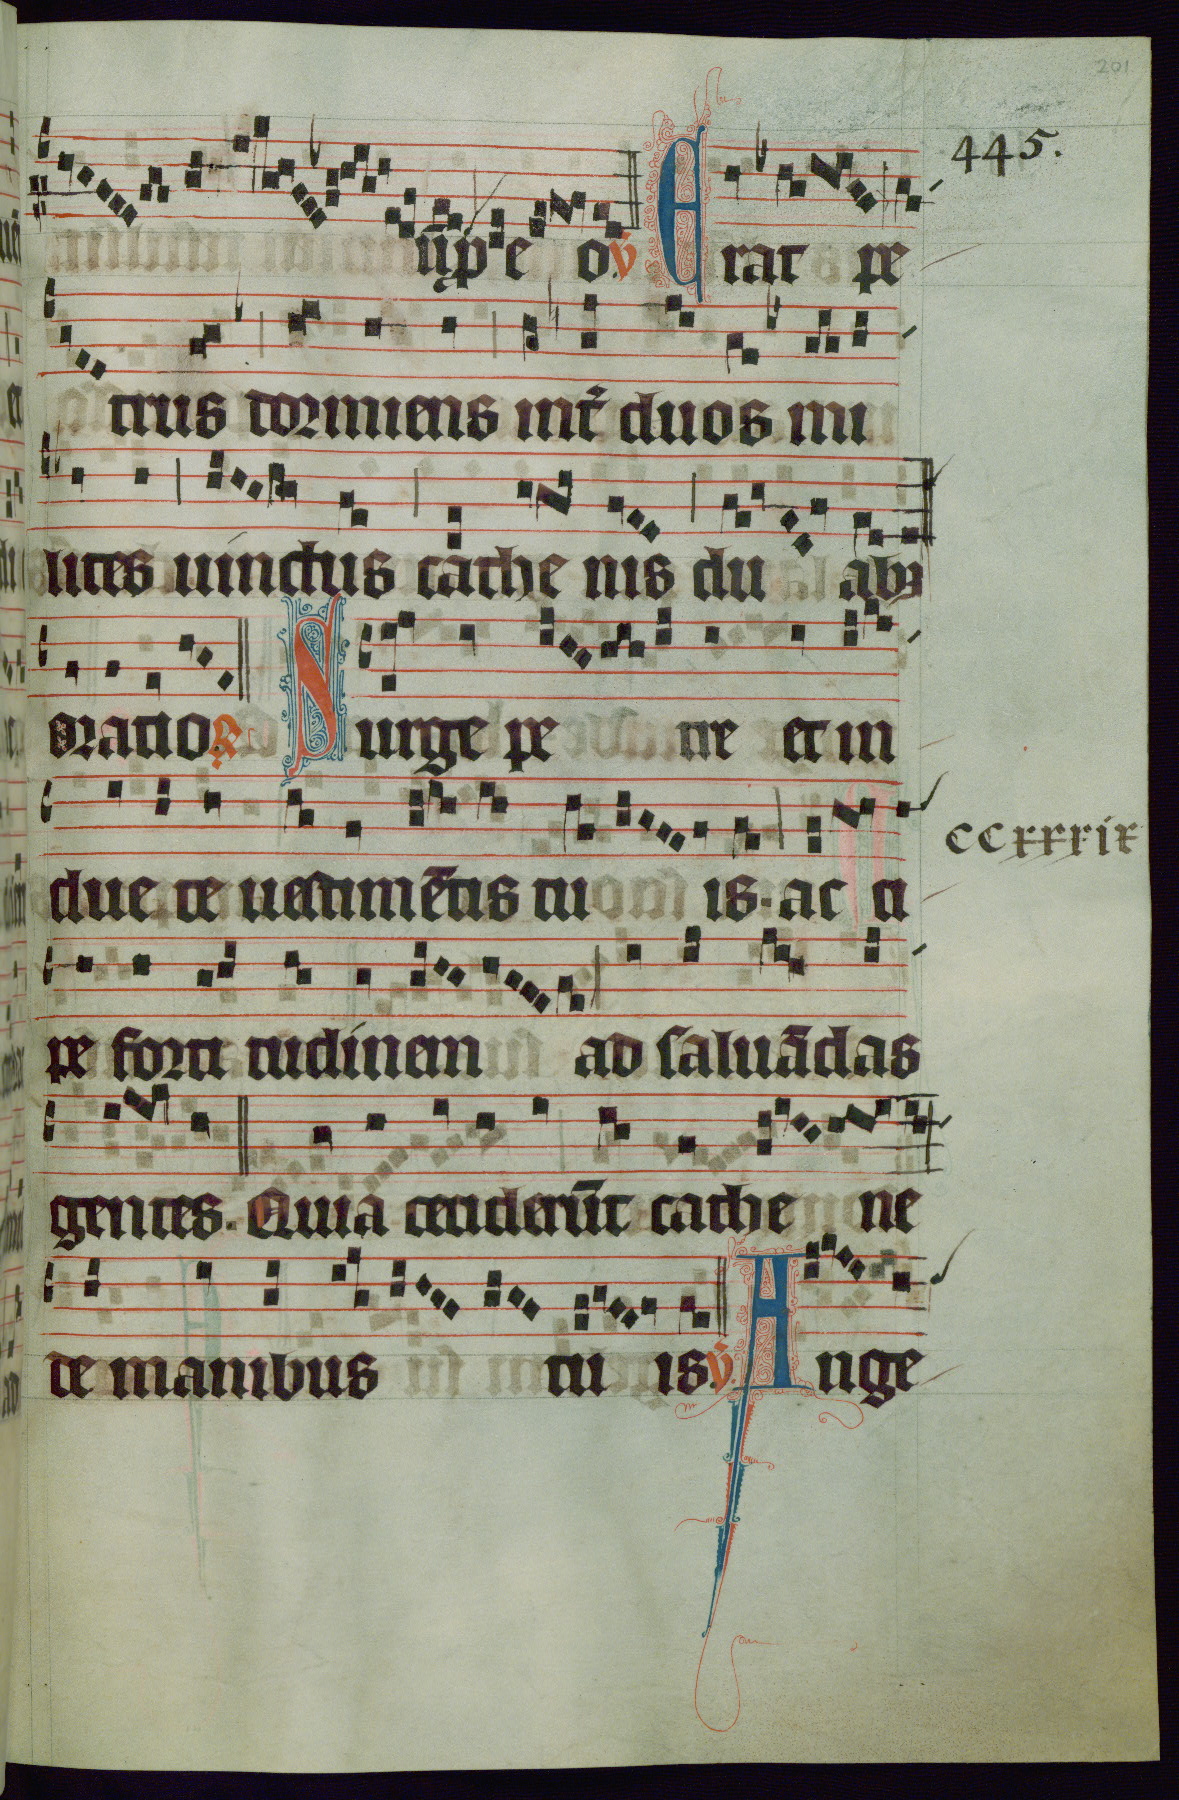 201
445.
up̄ e o. v̄ Erat pe
trus dormiens int̄ duos mi
lites uinctus cathe nis du abꝫ
oratio. R̄ Surge pe tre et in
due te uestimētis tu is. ac ci
CCxxxix
pe forti tudinem ad saluādas
gentes. Quia ceciderūt cathe ne
de manibus tu is. v̄ Ange